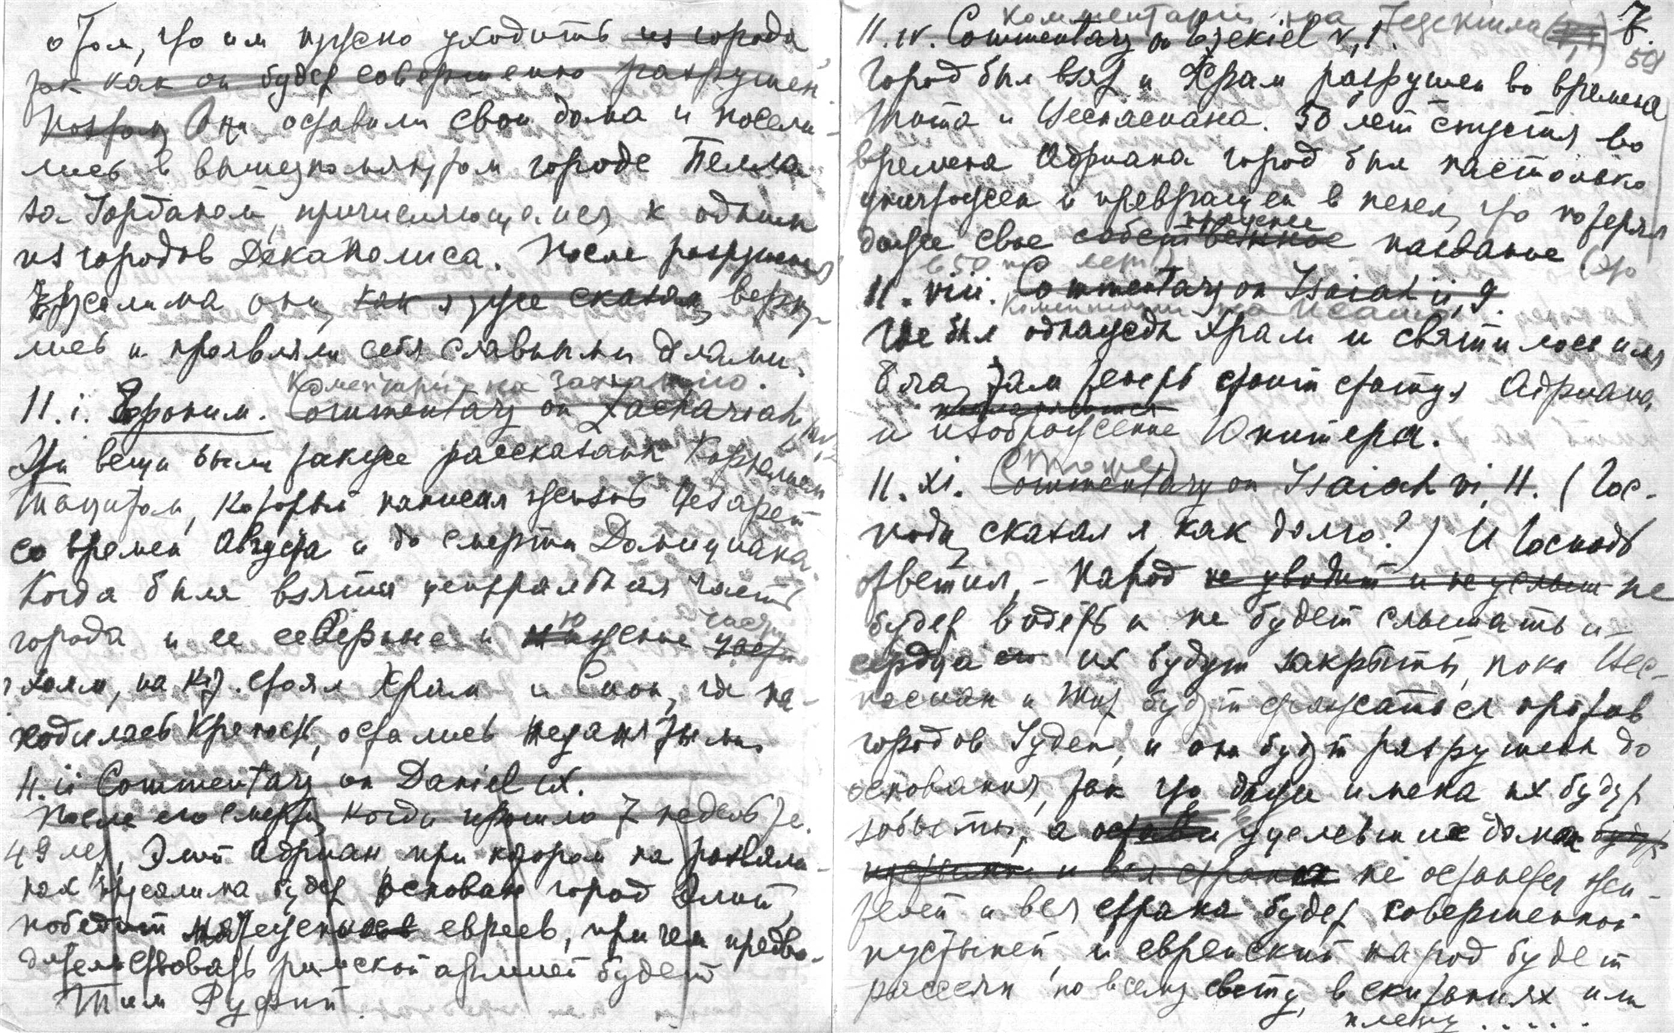 о том, что им нужно уходить из города
так как он будет совершенно разрушен.
Поэтому Они оставили свои дома и посели-
лись в вышеупомянутом городе Пелла
за Иорданом, причисляющемся к одним
из городов Декаполиса. После разрушения
Иерусалима они, как я уже сказал, верну-
лись и проявляли себя славными делами.
Коментарий на Захарию.
11. i. Иероним. Commentary on Zachariah
Эти вещи были также рассказаны Корнелием
Тацитом, который написал жизнь Цезарей
со времен Августа и до смерти Домициана.
Когда была взята центральная часть
города и ее северные и южные части
холм, на кот. стоял Храм и Сион, где на-
ходилась крепость, остались незанятыми.
11. ii Commentary on Daniel ix.
После его смерти, когда прошло 7 недель т.е.
49 лет, Элий Адриан при котором на развали-
нах Иерусалима будет основан город Элия,
победит мятежных евреев, причем предво-
дительствовать римской армией будет
Тит Руфин.
Комментарий на Иезекиила 7.
11. iv. Commentary on Ezekiel v, 1. 59
Город был взят и Храм разрушен во времена
Тита и Веспасиана. 50 лет спустя во
времена Адриана город был настолько
уничтожен и превращен в пепел, что потерял
прежнее
даже свое собственное название (это
в 50 лет)
11. viii. Commentary on Isaiah ii, 9.
Коментарий на Исаию
Где был однажды Храм и святилось имя
Бога, там теперь стоит статуя Адриана
и изображение Юпитера.
(тоже)
11. xi. Commentary on Isaiah vi, 11. (Гос-
поди, сказал я, как долго?) И Господь
ответил, - Народ не увидит и не услыш не
будет видеть и не будет слышать и
сердца его их будут закрыты, пока Вес-
пасиан и Тит будут сражаться против
городов Иудеи, и они будут разрушены до
основания, так что даже имена их будут
забыты, а уцелевших домах
и вся страна не останется жи-
телей и вся страна будет совершенной
пустыней, и еврейский народ будет
рассеян по всему свету, в скитаниях или
плену......